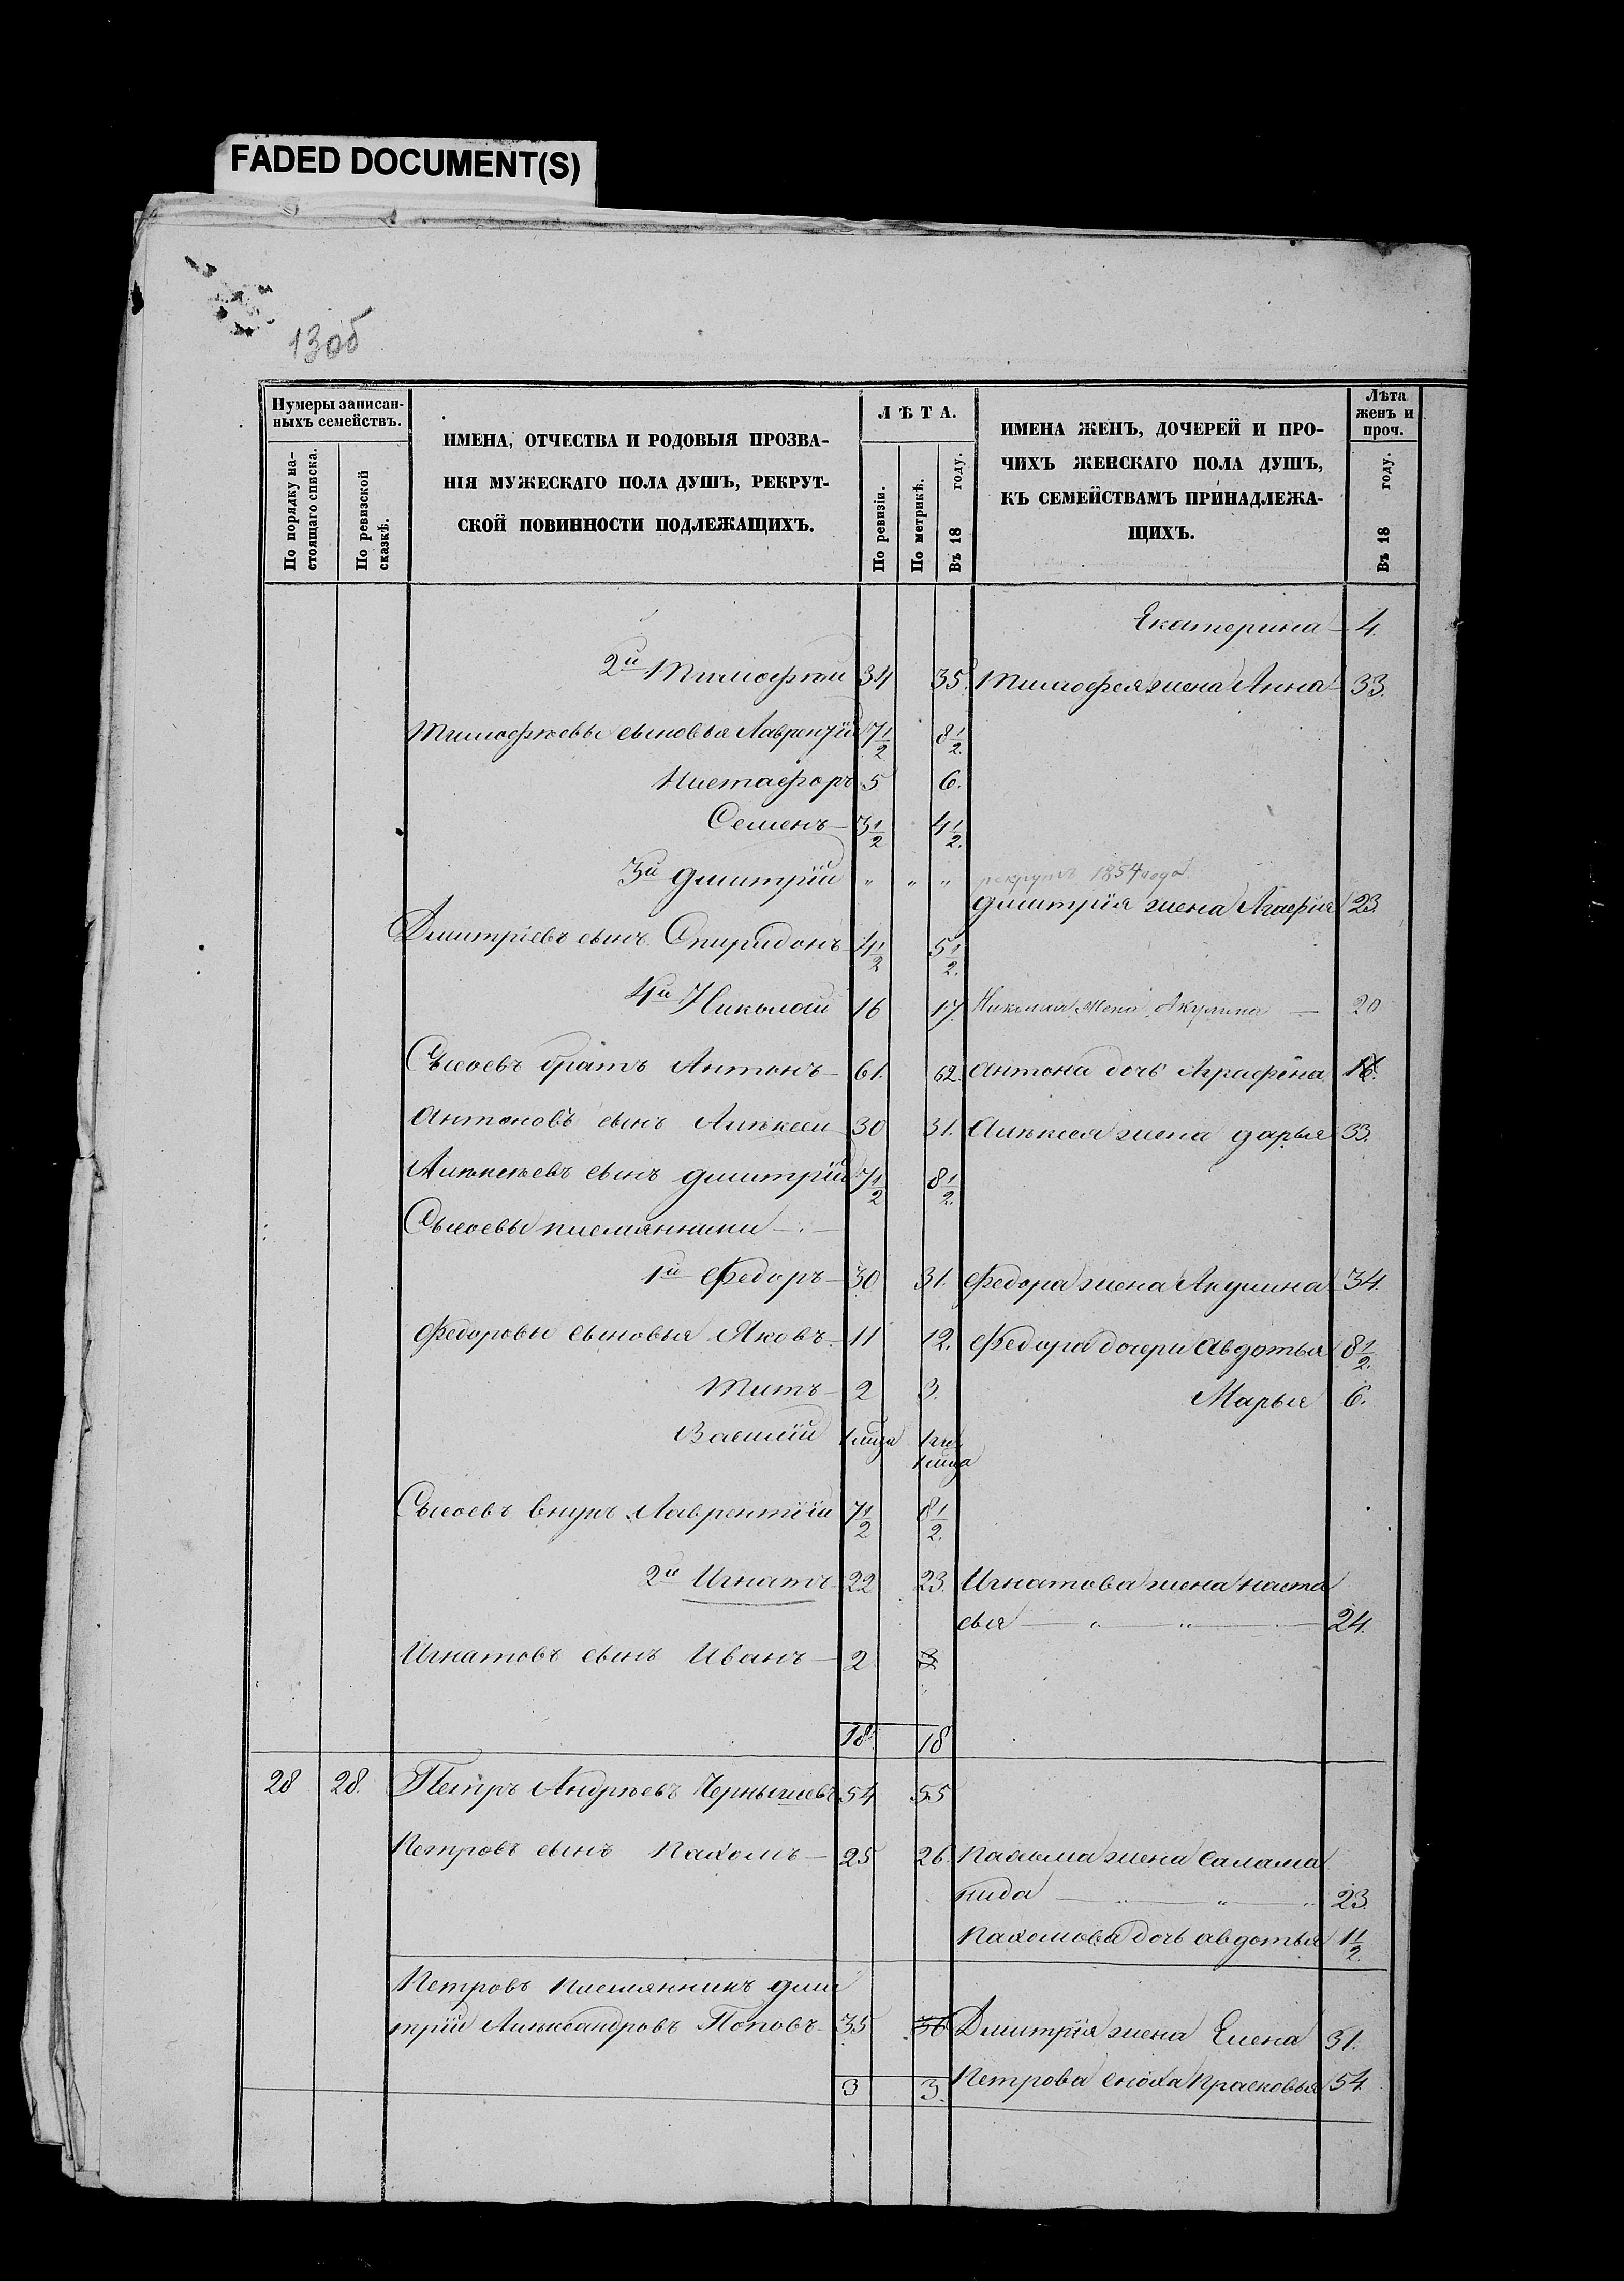 FADED DOCUMENT(S)
13об
Нумеры записан-
ныхъ семействъ.
По порядку на-
стоящаго списка.
По ревизской
сказкѣ.
ИМЕНА, ОТЧЕСТВА И РОДОВЫЯ ПРОЗВА-
НІЯ МУЖЕСКАГО ПОЛА ДУШЪ, РЕКРУТ-
СКОЙ ПОВИННОСТИ ПОДЛЕЖАЩИХЪ.
ЛѢТА.
По ревизіи.
По метрикѣ.
Въ 18 году.
ИМЕНА ЖЕНЪ, ДОЧЕРЕЙ И ПРО-
ЧИХЪ ЖЕНСКАГО ПОЛА ДУШЪ,
КЪ СЕМЕЙСТВАМЪ ПРИНАДЛЕЖА-
ЩИХЪ.
Лѣта
женъ и
проч.
Въ 18 году.
Екатерина 4.
2й Тимофѣй 34 35. Тимофея жена Анна 33.
Тимофѣевы сыновья Лаврентій 7 1/2 8 1/2.
5 6.
Семенъ 3 1/2 4 1/2.
3й Дмитрій " " " рекрутъ 1854 года
Дмитрія жена Агафія 23.
Дмитріевъ сынъ Спиридонъ 4 1/2 5 1/2.
4й Николай 16 17. Николая жена Акулина — 20
Сысоевъ братъ Антонъ 61. 62. Антона дочь Аграфена
Антоновъ сынъ Алѣксей 30 31. Алѣксея жена дарья 33.
Алѣксѣевъ сынъ дмитрій 7 1/2 8 1/2.
Сысоевы племянники —
1й Федоръ 30 31. Федора жена Акулина 34.
Федоровы сыновья Яковъ 11 12. Федора дочери авдотья 8 1/2.
Титъ 2 3. Марья 6.
Василій
Сысоевъ внукъ Лаврентій 7 1/2 8 1/2.
2й Игнатъ 22 23. Игнатова жена наста
сья — " — " — 24.
Игнатовъ сынъ Иванъ 2 3
18. 18
28 28. Петръ Андрѣевъ Чернышевъ 54 55
Петровъ сынъ Пахомъ 25 26. Пахома жена Салама
нида — " — 23.
Пахомова дочь авдотья 1 1/2.
Петровъ племянникъ дми
трій Алѣксандровъ Поповъ 35 36 Дмитрія жена Елена 31.
3 3. Петрова сноха прасковья 54.